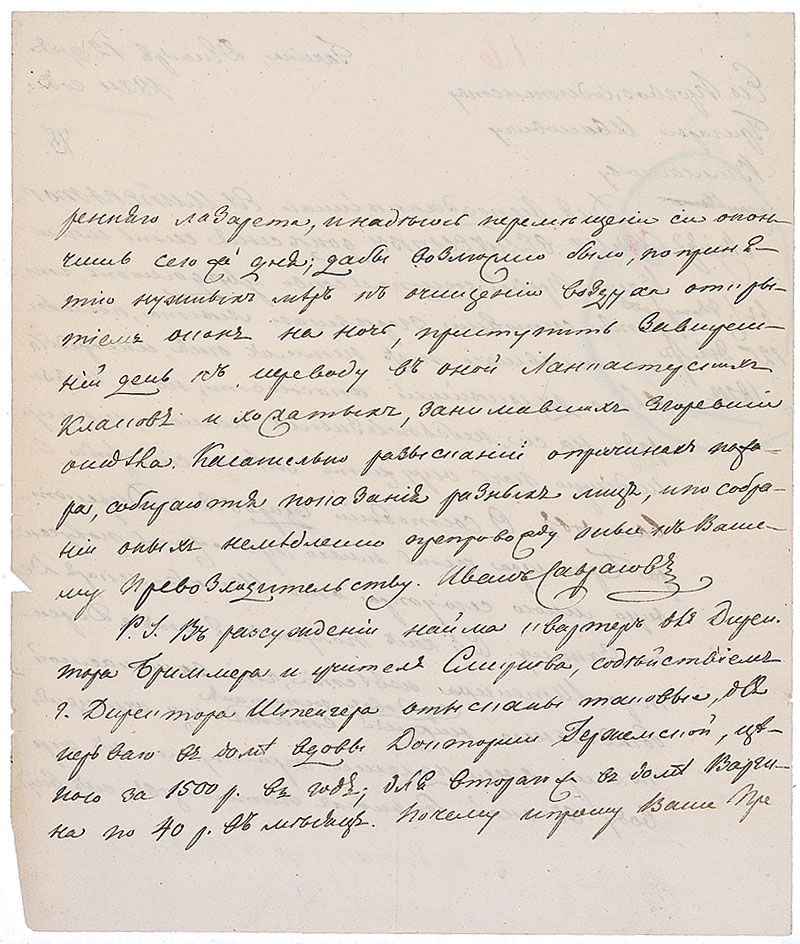 реннаго лазарета, и надѣюсь перемѣщеніи сіи окон-
чить сего же дня; дабы возможно было, по приня-
тію нужныхъ мѣръ къ очищенію воздуха откры-
тіемъ оконъ на ночь, приступить завтреш-
ній день къ переводу въ оной Ланкастерскихъ
классовъ и хожатыхъ, занимавшихъ згоревшій
Касательно разысканій о причинахъ пожа-
ра, собираются показанія разныхъ лицъ, и по собра-
ніи оныхъ немедленно препровожду оныя къ Ваше-
му Превозходительству. Иванъ Саврасовъ
P.S. Въ разсужденіи найма квартеръ для Дирек-
тора Бриммера и учителя Смирнова, содѣйствіемъ
г. Директора Штенгера отысканы таковые, для
перьваго въ домѣ вдовы Докторши цѣ-
ною за 1500 р. въ годъ; для втораго въ домѣ Варги-
на по 40 р. въ мѣсяцъ. Почему и прошу Ваше Пре